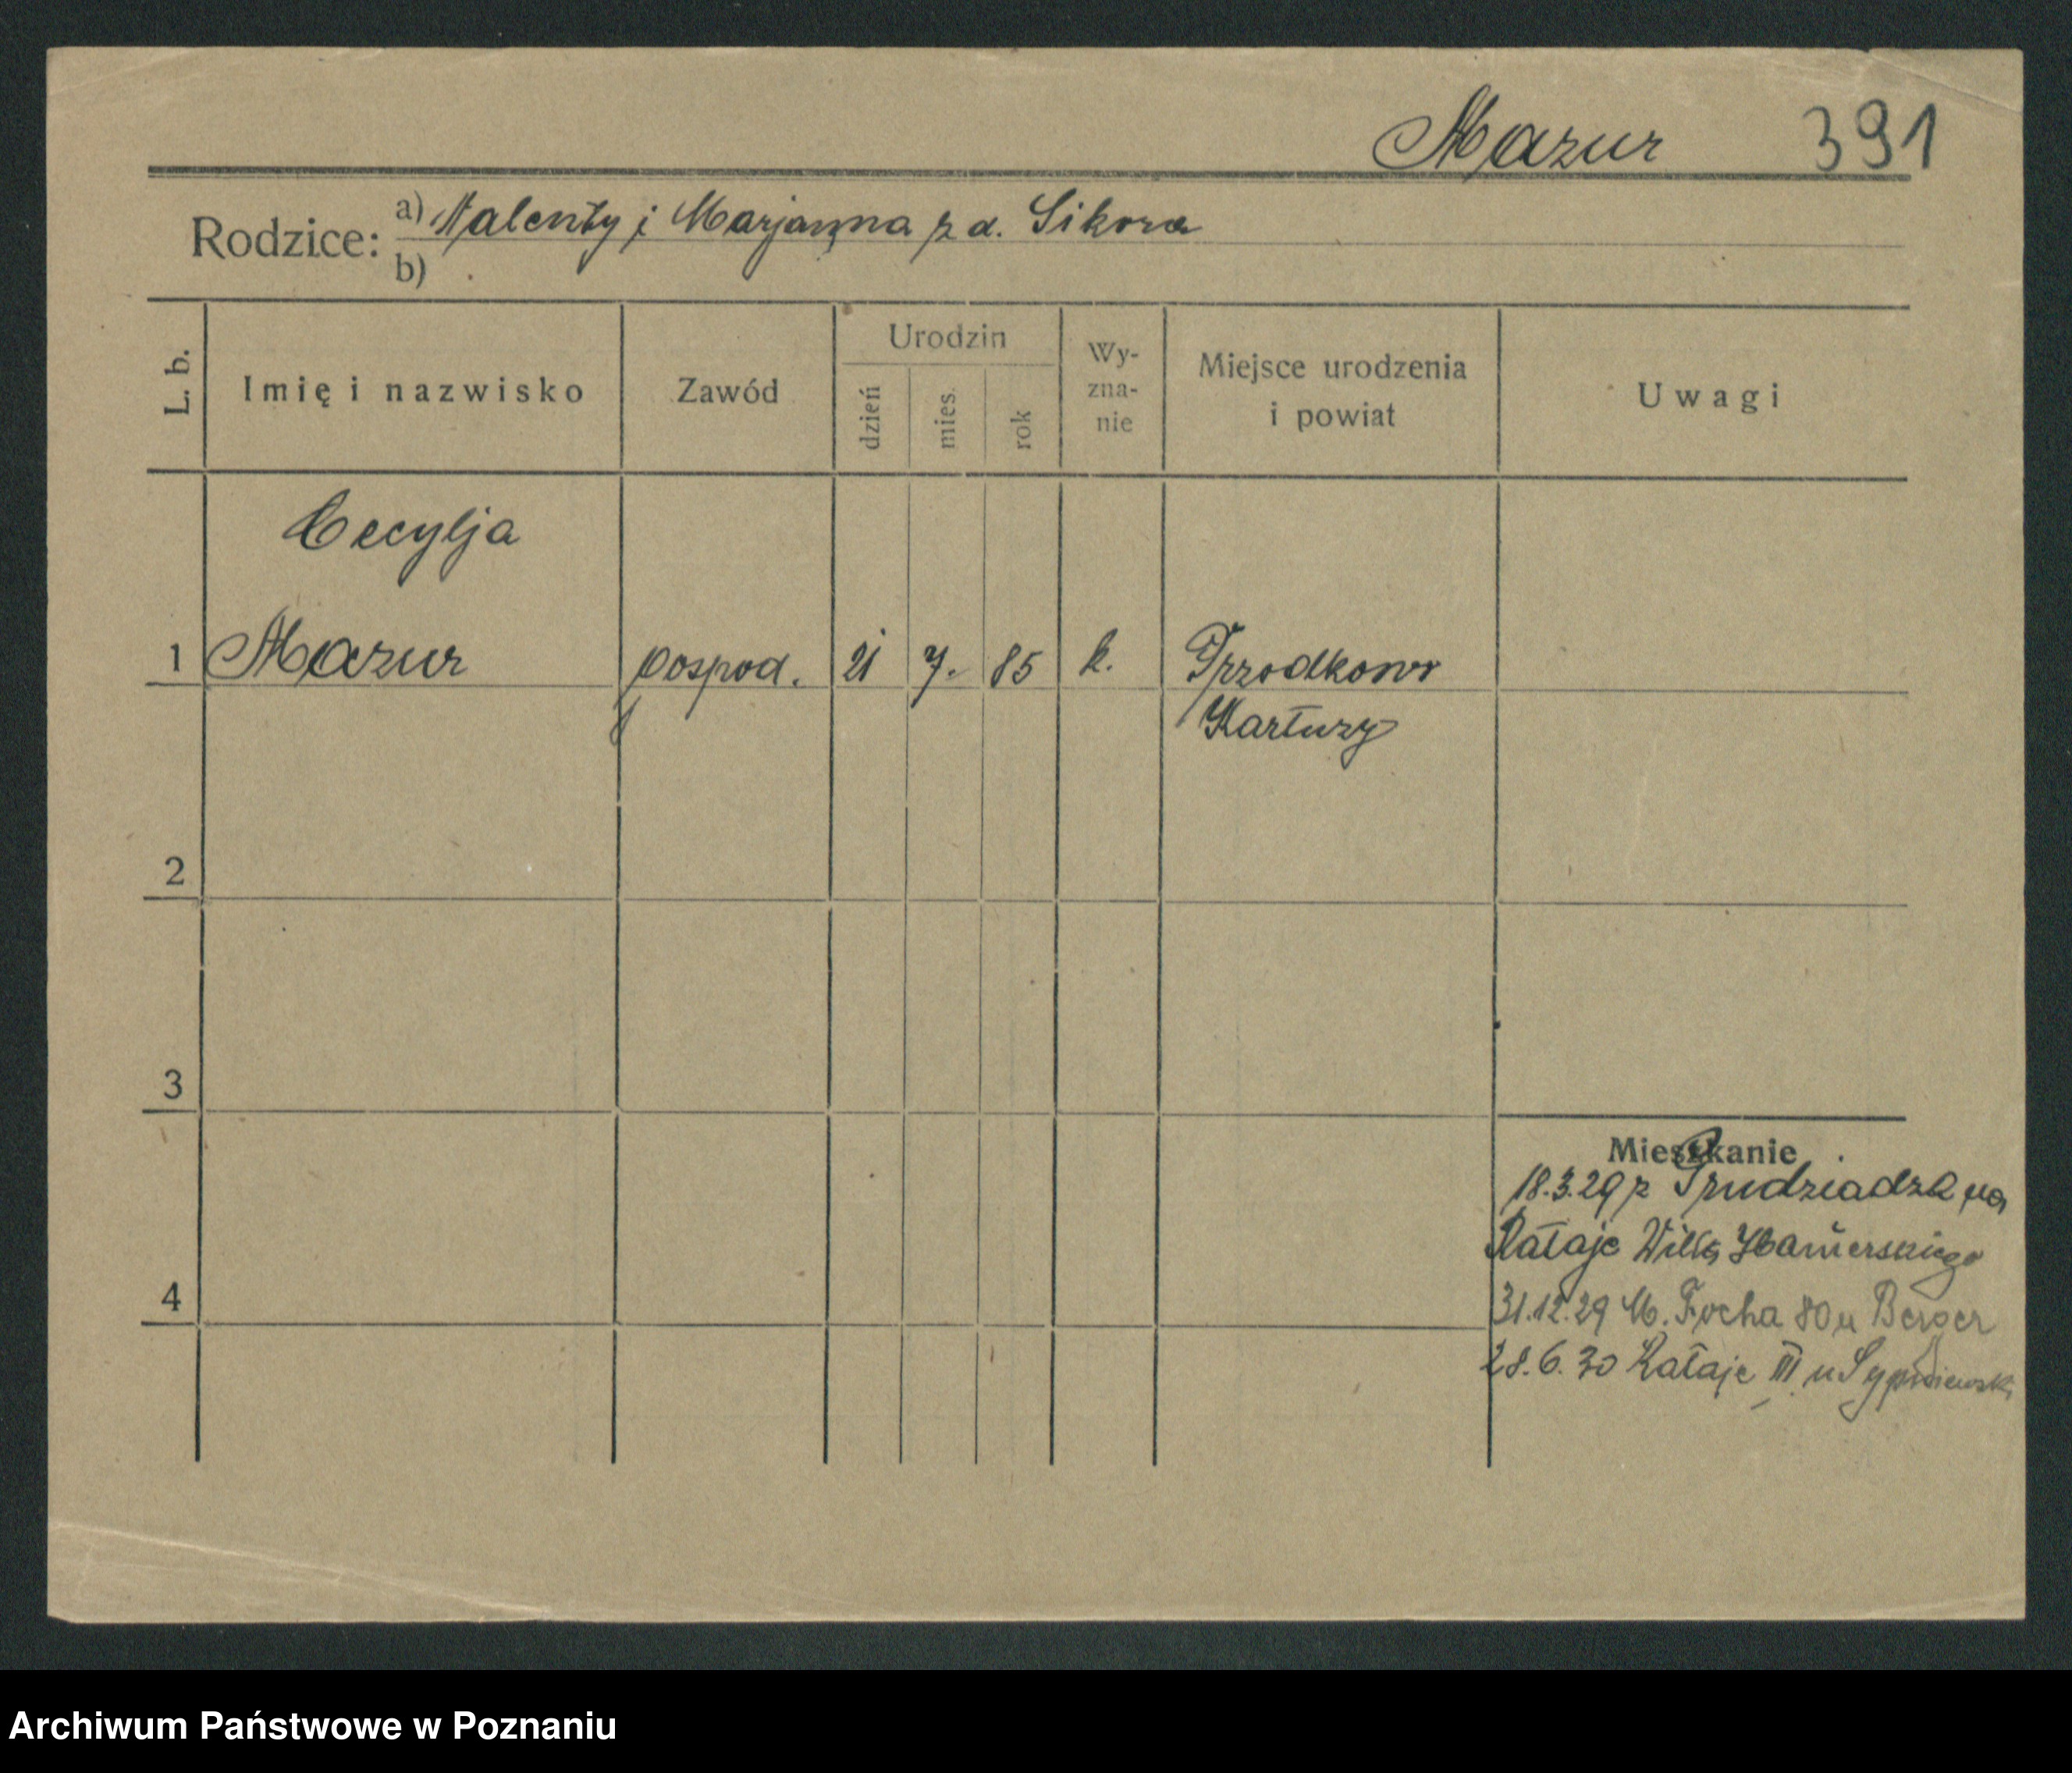 Mazur 391
Rodzice: a) Walenty i Marjanna z d. Sikora
b)
L. b. Imię i nazwisko Zawód Urodzin dzień mies. rok Wy-zna-nie Miejsce urodzenia i powiat Uwagi
Cecylja
1 Mazur gospod. 21 7. 85 k. Przodkowo
Kartuzy
2
3
Mieszkanie
18.3.29 z Grudziadza na
Rataje Willa
4 31.12.29 M. Focha 80 u Berger
28.6.30 Rataje III u
Archiwum Państwowe w Poznaniu